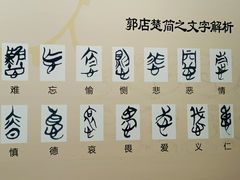 郭店楚简之文字解析
难 忘 愉 恻 悲 恶 情
慎 德 哀 畏 爱 义 仁